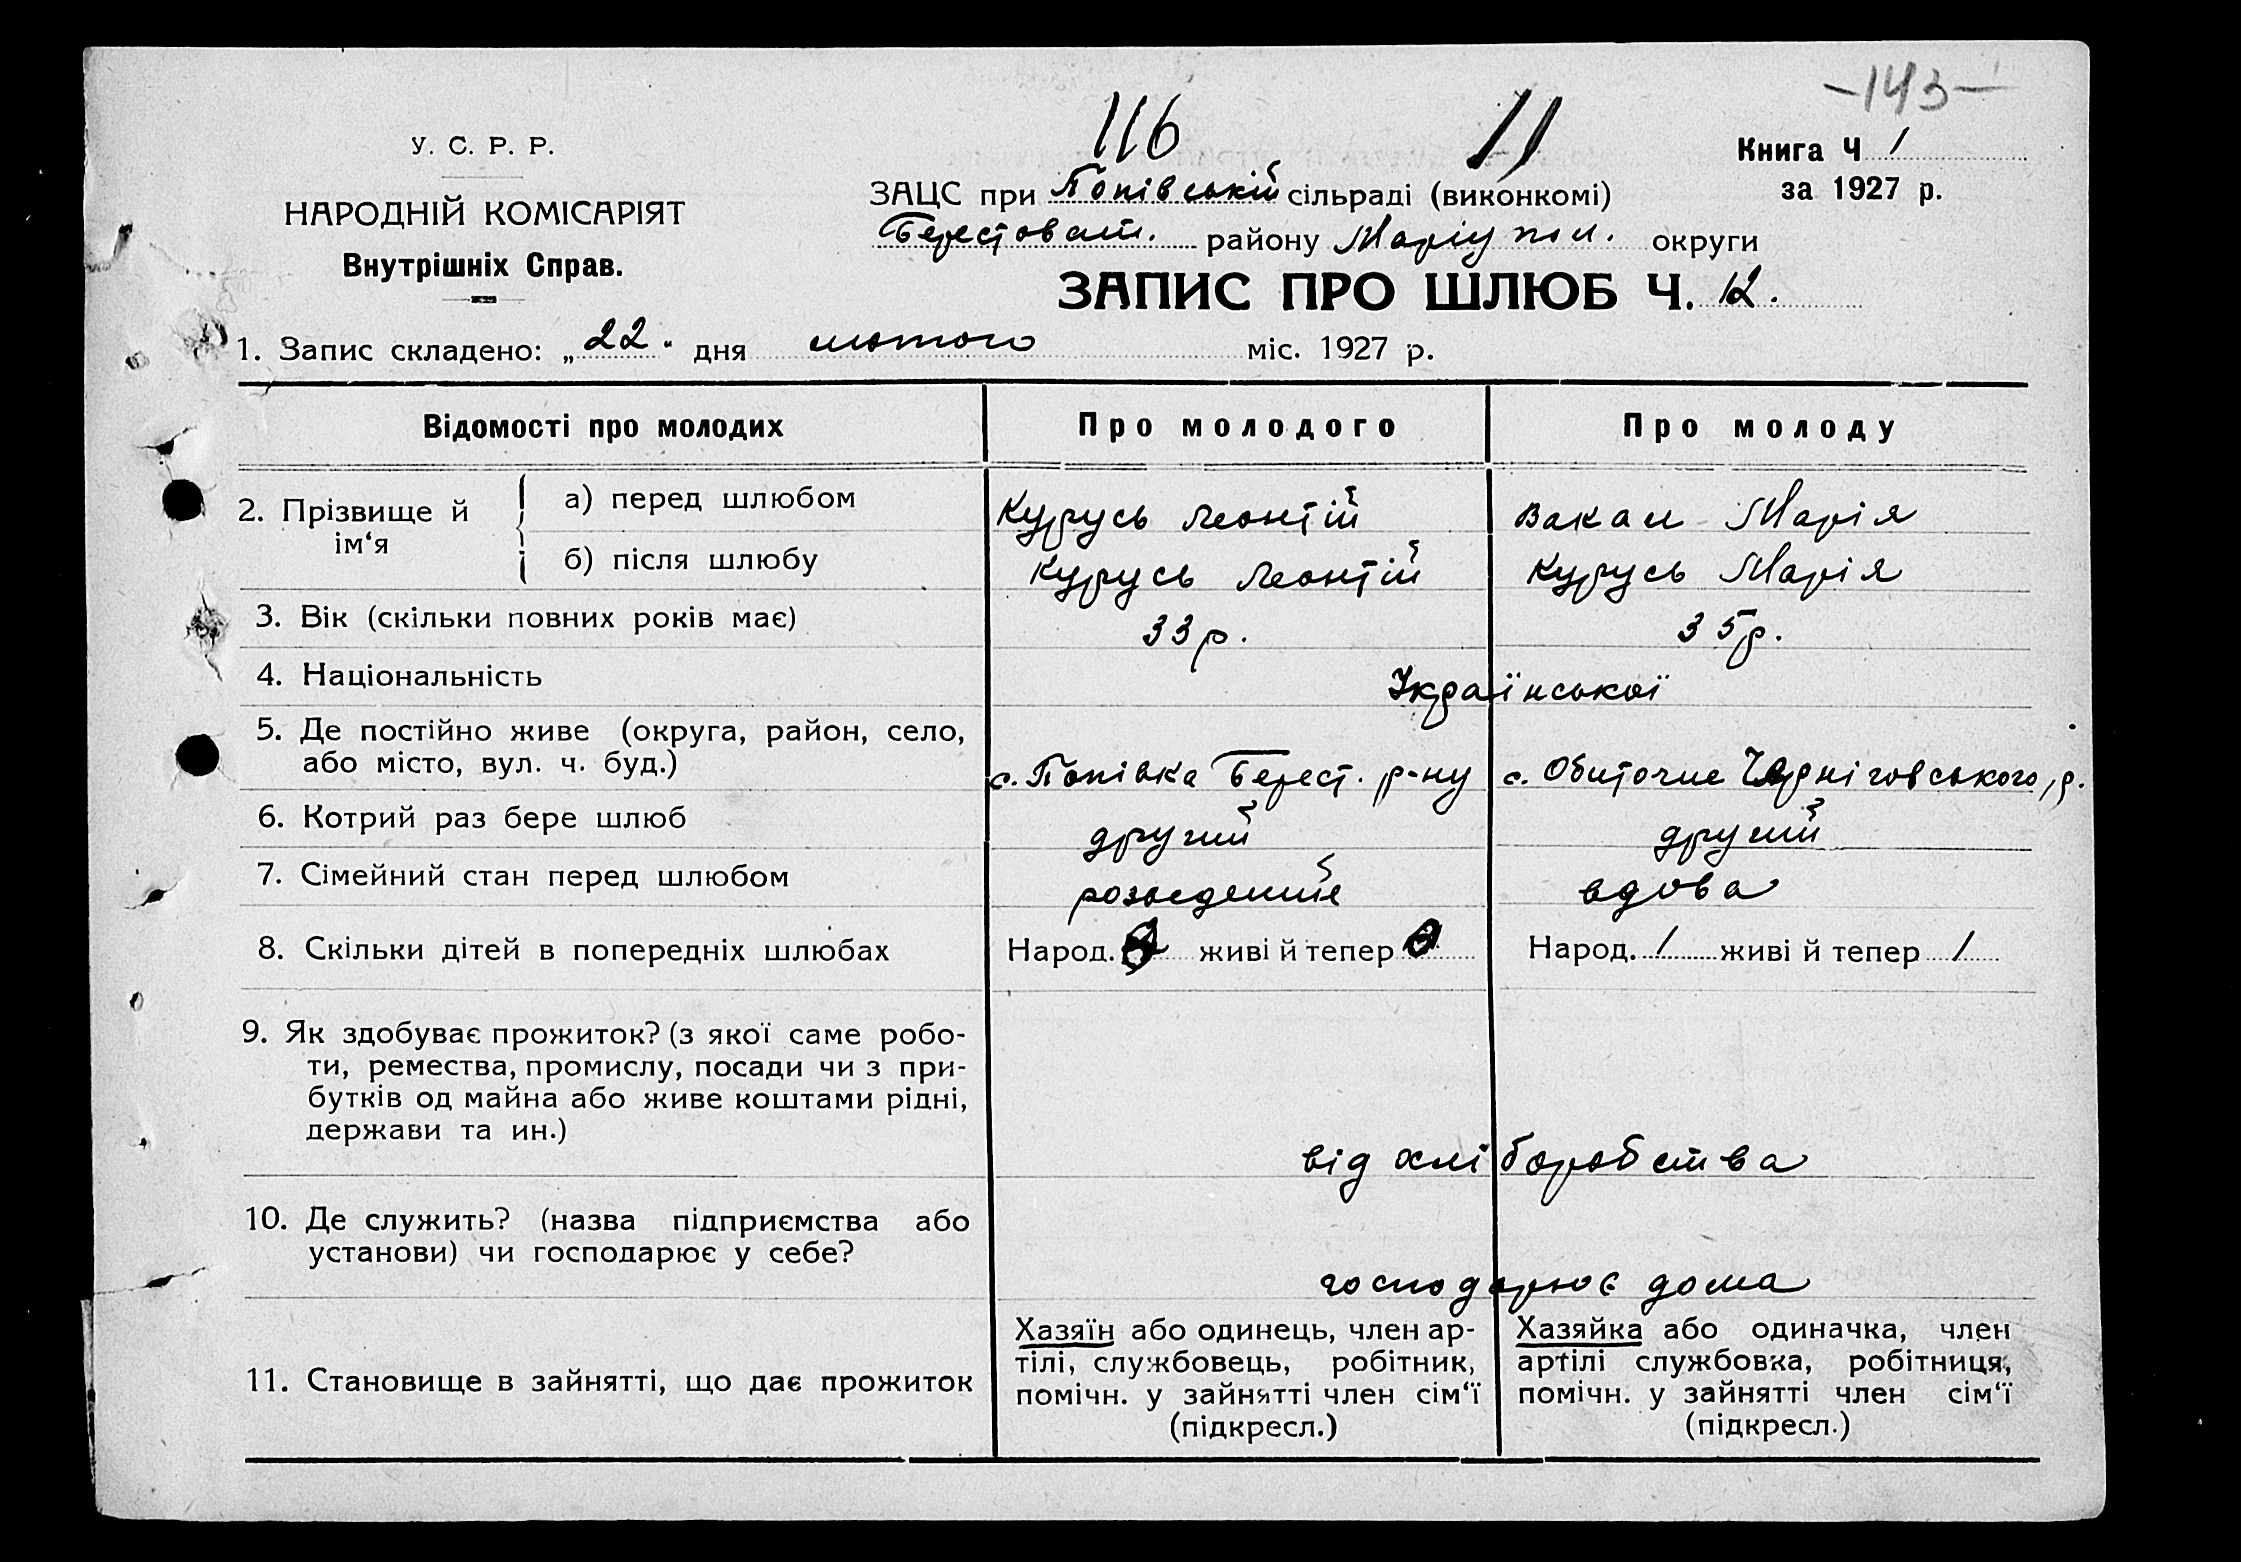 -143-
116 11
У. С. Р. Р.
НАРОДНІЙ КОМІСАРІЯТ
Внутрішніх Справ.
Книга Ч 1
за 1927 р.
ЗАЦС при Попівській сільраді (виконкомі)
Берестоват. району Маріупол. округи
ЗАПИС ПРО ШЛЮБ Ч. 12.
1. Запис складено: „22" дня лютого міс. 1927 р.
Відомості про молодих Про молодого Про молоду
2. Прізвище й ім‘я
а) перед шлюбом Курусь Леонтій Вакал Марія
б) після шлюбу Курусь Леонтій Курусь Марія
3. Вік (скільки повних років має) 33 р. 35 р.
4. Національність Української
5. Де постійно живе (округа, район, село,
або місто, вул. ч. буд.) с. Попівка Берест. р-ну с. Обиточне Черніговського р.
6. Котрий раз бере шлюб другий другий
7. Сімейний стан перед шлюбом розведений вдова
8. Скільки дітей в попередніх шлюбах Народ. живі й тепер Народ. 1 живі й тепер 1
9. Як здобуває прожиток? (з якої саме робо-
ти, ремества, промислу, посади чи з при-
бутків од майна або живе коштами рідні,
держави та ин.)
від хліборобства
10. Де служить? (назва підприємства або
установи) чи господарює у себе?
господарює дома
11. Становище в зайнятті, що дає прожиток
Хазяїн або одинець, член ар-
тілі, службовець, робітник,
помічн. у зайнятті член сім‘ї
(підкресл.)
Хазяйка або одиначка, член
артілі службовка, робітниця,
помічн. у зайнятті член сім‘ї
(підкресл.)